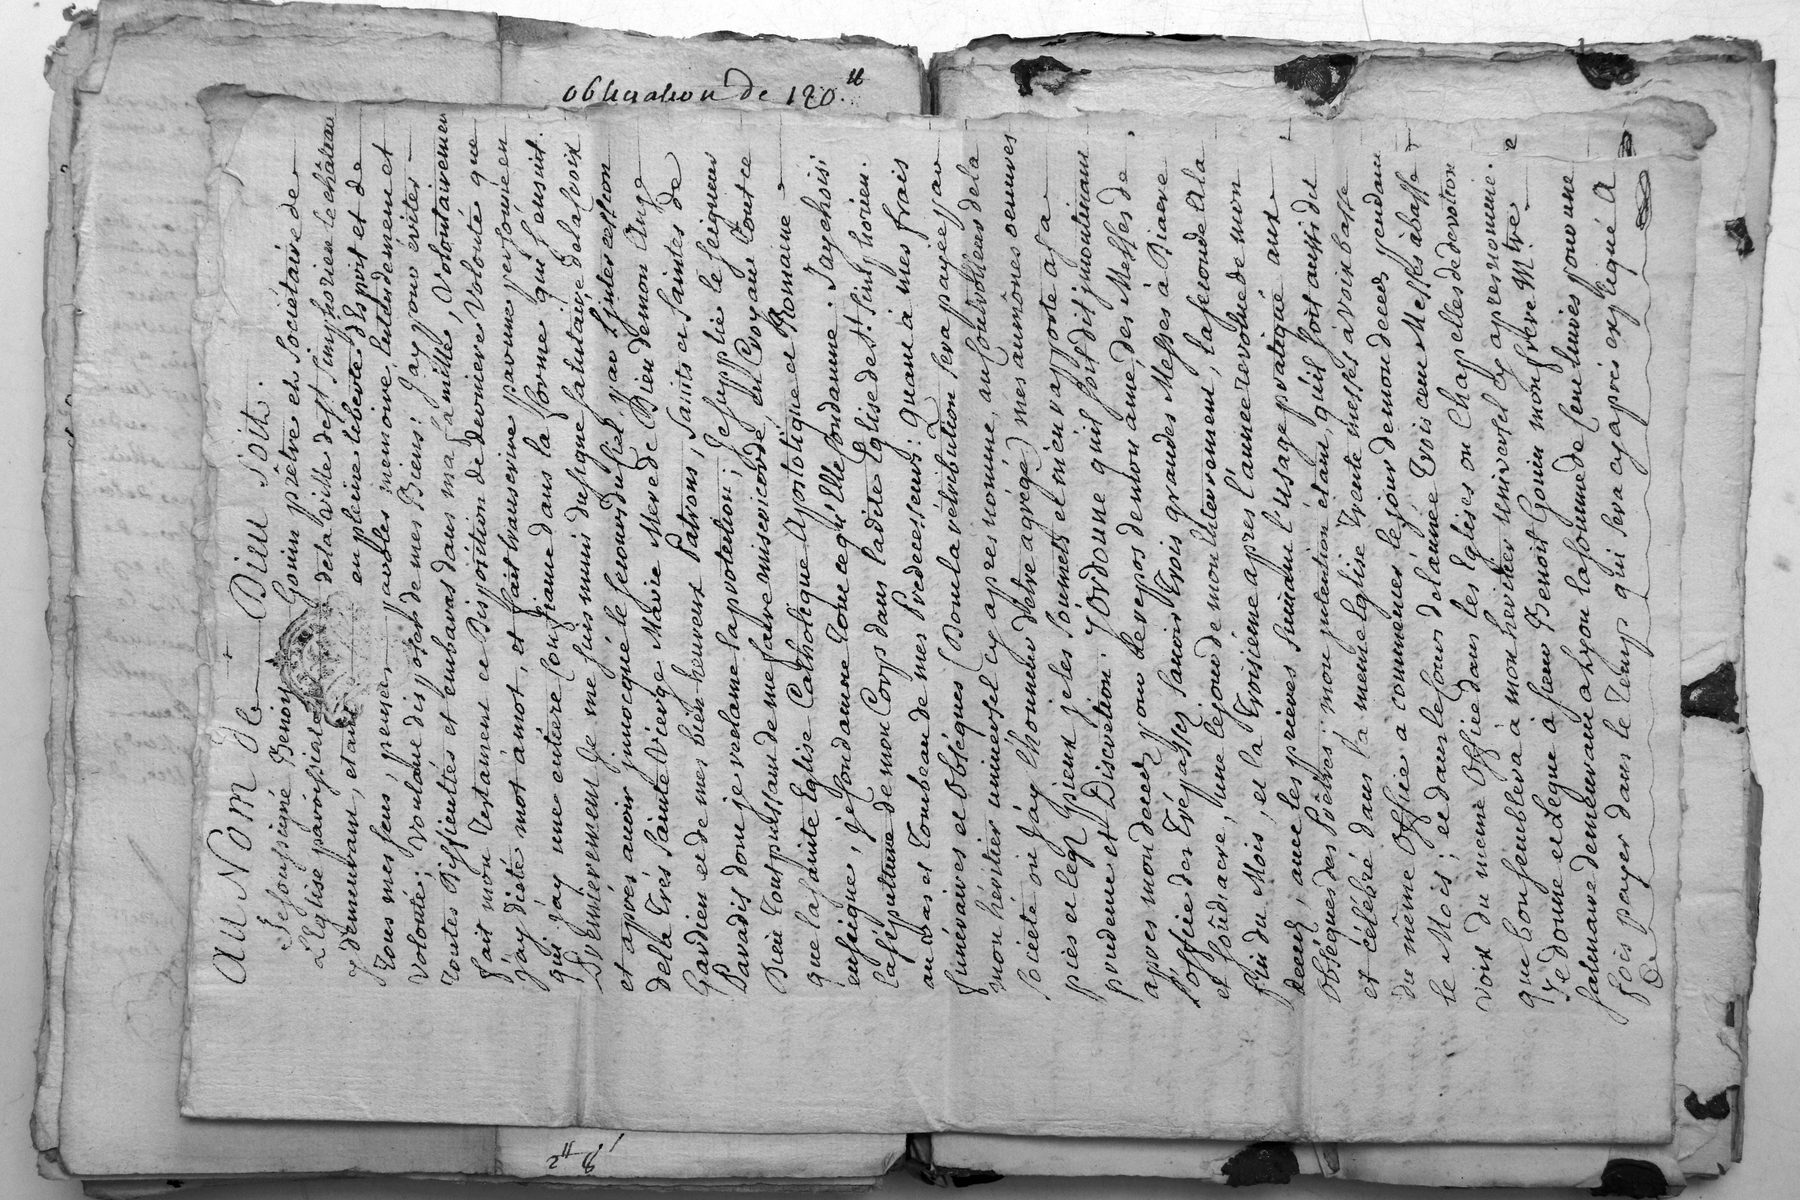 obligation de 120.ᵗᵗ
Au Nom de Dieu soit.
Je soussigné Benoit Gonin prêtre et Sociétaire de
L'Eglise paroissiale de la ville de St Simphorien le château
y demeurant, etant en pleine liberté d'Esprit et de
tous mes sens, pensées, paroles memoire, entendement et
volonté; voulant disposer de mes Biens: pour éviter
toutes Difficultés et embaras dans ma famille, volontairement
fait mon Testament et Disposition de derniere Volonté que
j'ay dicté mot à mot, et fait transcrire par une personne en
qui j'ay une entiere Confiance dans la forme qui s'ensuit.
Premierement Je me suis muni du signe salutaire de la Croix
et apres avoir invocqué le secours du Ciel par l'intercession
de la très Sainte Vierge Marie Mere de Dieu de mon Ange
Gardien et de mes bien heureux Patrons, Saints et Saintes de
Paradis dont je reclame la protection; Je supplie le Seigneur
Dieu tout puissant de me faire misericorde, en Croyant tout ce
que la sainte Eglise Catholique Apostolique et Romaine
enseigne, je Condamne tout ce qu'Elle Condamne: J'ay choisi
la sepulture de mon Corps dans ladite Eglise de St. Simphorien.
au bas et Tombeau de mes Predecesseurs: quant à mes frais
funéraires et Obséques (Dont la rétribution sera payée par
mon héritier universel cy apres nommé, au Confreres de la
Societé ou j'ay l'honneur d'etre agrégé) mes aumônes oeuvres
pies et legs pieux je les soumets et m'en rapporte a sa
prudence et Discretion: J'Ordonne qu'il soit dit jncontinant
apres mon decez pour le repos de mon ame, des Messes de
l'office des trépassés Savoir trois grandes Messes à Diacre
et soûdiacre, une le jour de mon Enterrement, la seconde a la
fin du Mois, et la troisieme apres l'année revolue de mon
decez, avec les prieres suivant l'usage pratiqué aux
Obséques des Prêtres: mon jntention étant, qu'il soit aussi dit
et célébré dans la meme Eglise Trente messes à voix basse
du même Office a commencer le jour de mon decez pendant
le Mois; et dans le Cours de l'année trois cent Messes à basse
voix du meme Office dans les Eglises ou Chapelles de devotion
que bon semblera à mon heritier universel cy apres nommé.
Je donne et Legue à sieur Benoit Gonin mon frere Mtre
demeurant a Lyon la somme de Cent livres pour une
fois payer dans le temps qui sera cy après expliqué A